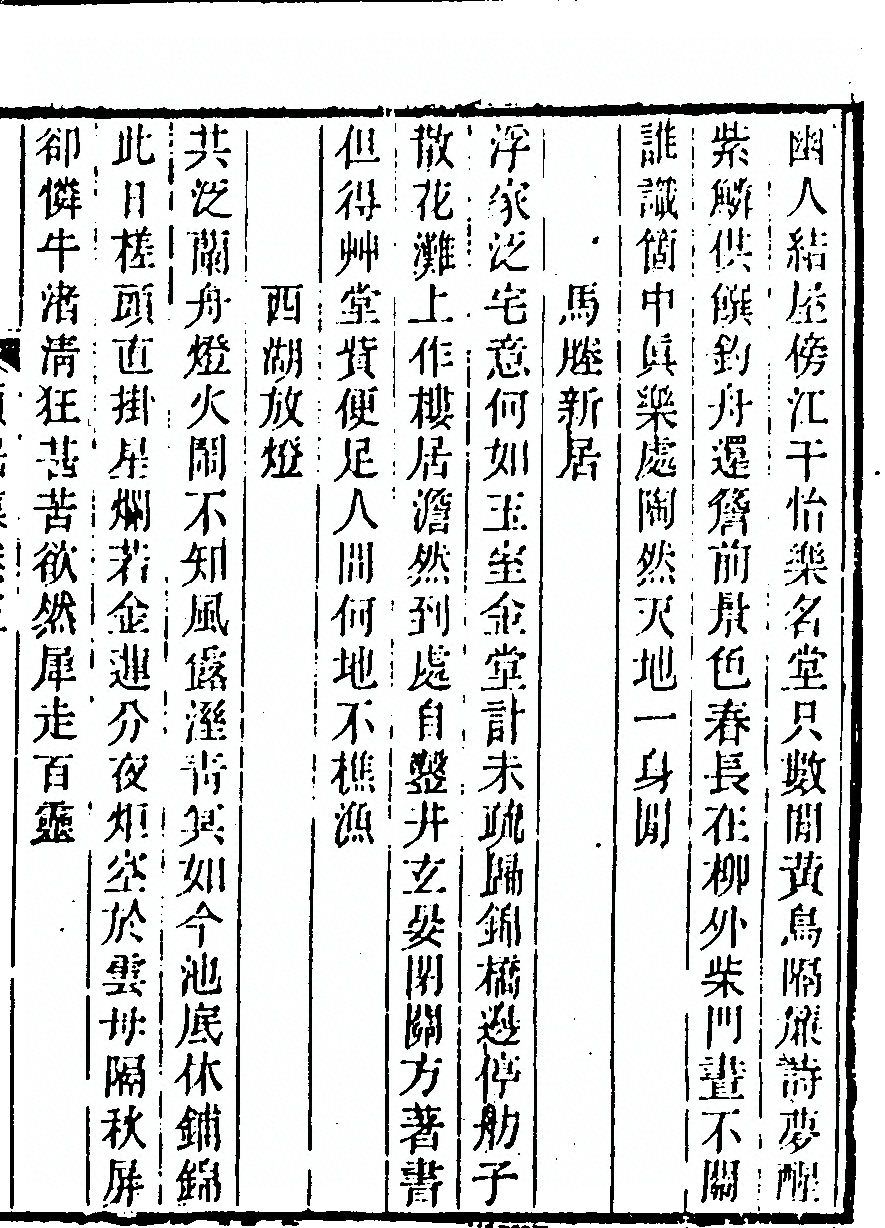 幽人結屋傍江干怡樂名堂只數間黃鳥隔簾詩夢醒
紫鱗供饌釣舟還詹前景色春長在柳外柴門晝不關
誰識箇中眞樂處陶然天地一身閒
馬塍新居
浮家泛宅意何如玉室金堂計未疏歸錦橋邊停舫子
散花灘上作樓居澹然到處自鑿井玄晏閉關方著書
但得艸堂貲便足人間何地不樵漁
西湖放燈
共泛蘭舟燈火鬧不知風露溼靑冥如今池底休鋪錦
此日槎頭直掛星爛若金蓮分夜炬空於雲母隔秋屏
卻憐牛渚淸狂甚苦欲然犀走百靈